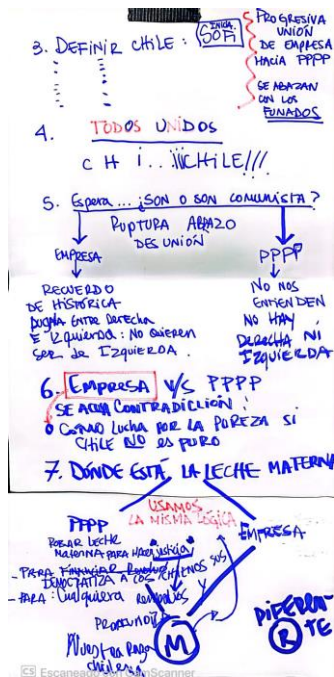 3. DEFINIR CHILE:
INICIA
SOFI
PROGRESIVA
UNIÓN
DE EMPRESA
HACIA PPPP
SE ABAZAN
CON LOS
FUNADOS
4. TODOS UNIDOS
C H I . . ¡¡¡CHILE///
5. Espera... ¿SON O SON COMUNISTA?
RUPTURA ABAZO
DESUNIÓN
EMPRESA
RECUERDO
DE HISTÓRICA
PUGNA ENTRE DERECHA
E IZQUIERDA: NO QUIEREN
SER DE IZQUIERDA.
PPPP
NO NOS
ENTIENDEN
NO HAY
DERECHA NI
IZQUIERDA
6. EMPRESA V/S PPPP
SE AGUA CONTRADICCIÓN:
COMO LUCHA POR LA PUREZA SI
CHILE NO ES PURO
7. DÓNDE ESTÁ LA LECHE MATERNA
USAMOS
LA MISMA LÓGICA
PPPP
ROBAR LECHE
MATERNA PARA HACER justicia
- PARA FINANCIAR
DEMOCRATIZA A LOS CHILENOS SUS
- PARA: Cualquiera
Y
R
Nuestra Raza
chilena
EMPRESA
M
DIFEREN-
TE
R
CS Escaneado con CamScanner